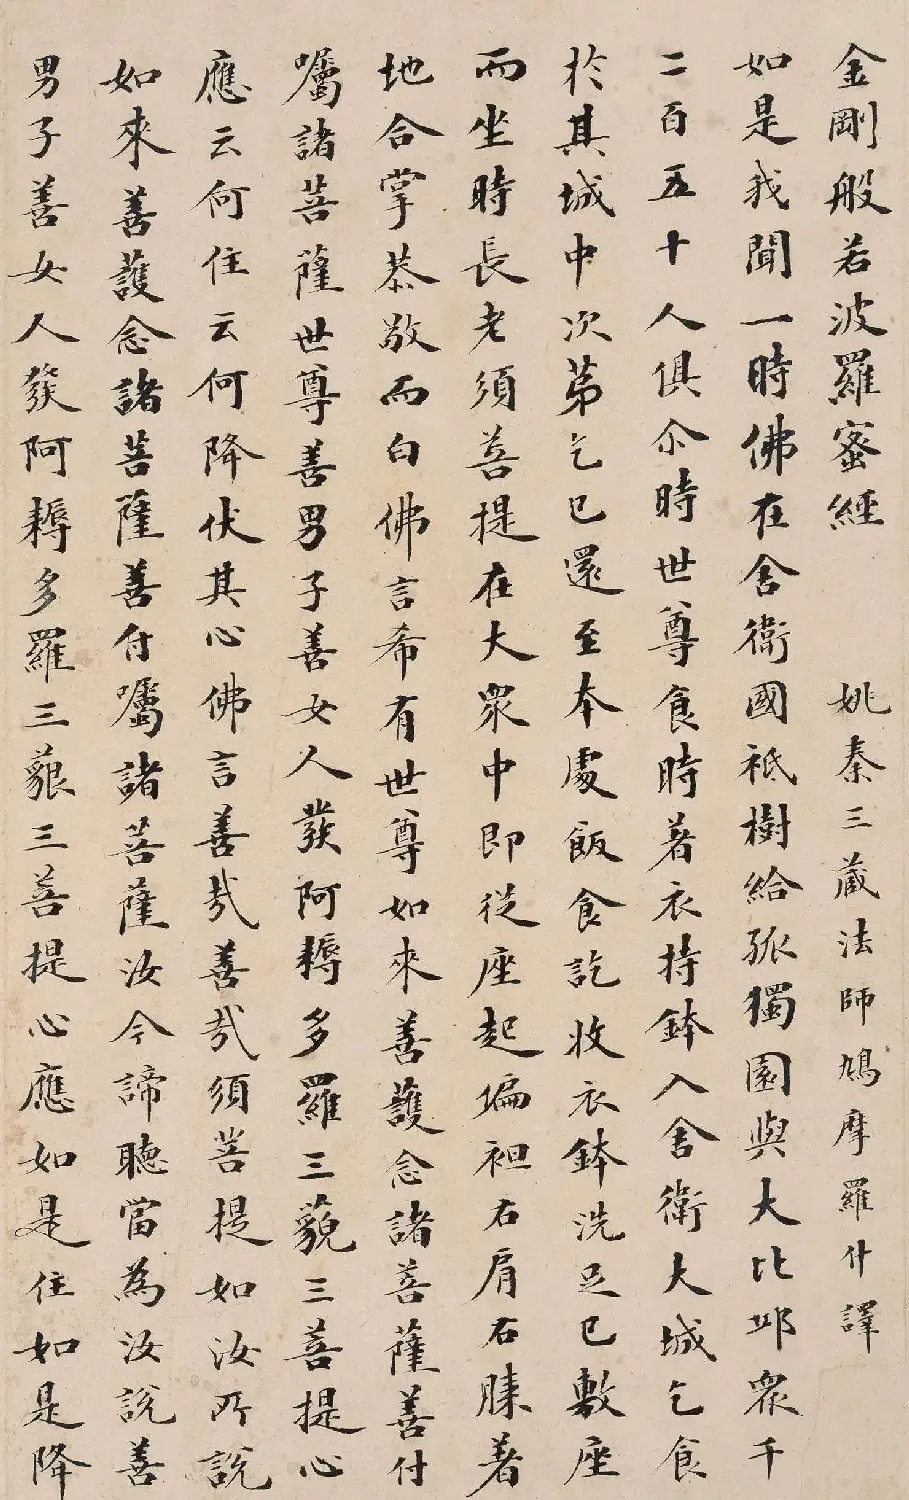 金剛般若波羅蜜經 姚秦三藏法師鳩摩羅什譯
如是我聞一時佛在舍衛國祇樹給孤獨園與大比邱衆千
二百五十人俱尒時世尊食時著衣持鉢入舍衛大城乞食
於其城中次第乞已還至本處飯食訖收衣鉢洗足已敷座
而坐時長老須菩提在大衆中即從座起偏袒右肩右膝著
地合掌恭敬而白佛言希有世尊如來善護念諸菩薩善付
囑諸菩薩世尊善男子善女人發阿耨多羅三藐三菩提心
應云何住云何降伏其心佛言善哉善哉須菩提如汝所說
如來善護念諸菩薩善付囑諸菩薩汝今諦聽當為汝說善
男子善女人發阿耨多羅三藐三菩提心應如是住如是降